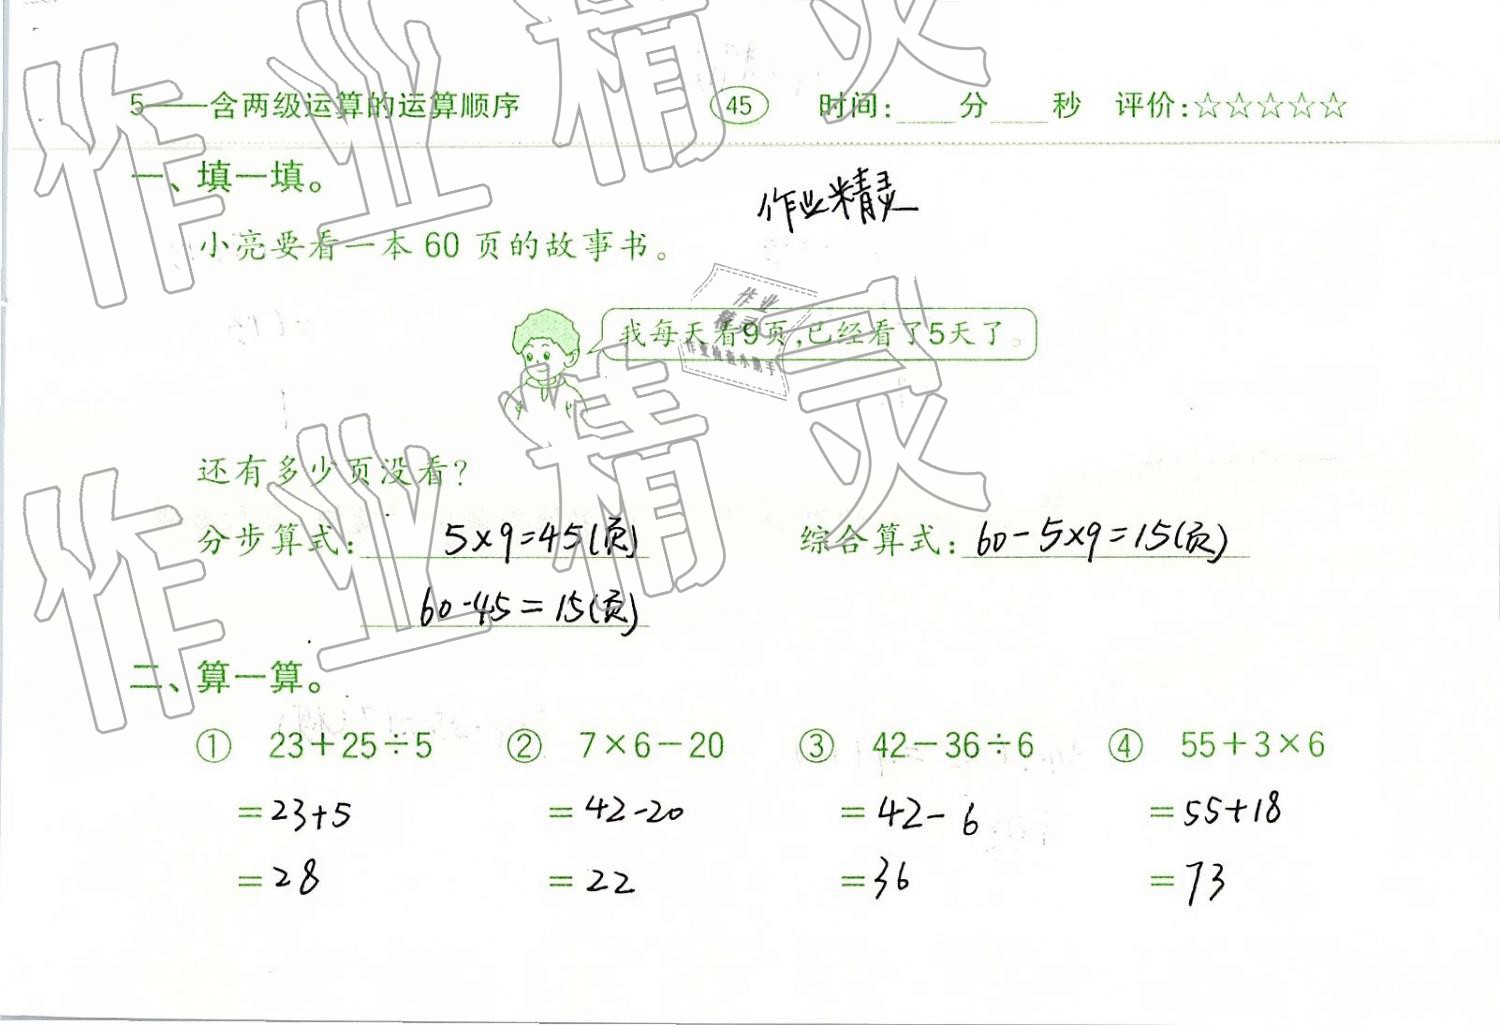 5——含两级运算的运算顺序 45 时间:____分____秒 评价:☆☆☆☆☆
一、填一填。
作业精灵
小亮要看一本60页的故事书。
作业
精灵
作业检查小助手
我每天看9页,已经看了5天了。
还有多少页没看?
分步算式: 5×9=45(页) 综合算式: 60-5×9=15(页)
60-45=15(页)
二、算一算。
① 23+25÷5 ② 7×6-20 ③ 42-36÷6 ④ 55+3×6
=23+5 =42-20 =42-6 =55+18
=28 =22 =36 =73
作业精灵
作业精灵